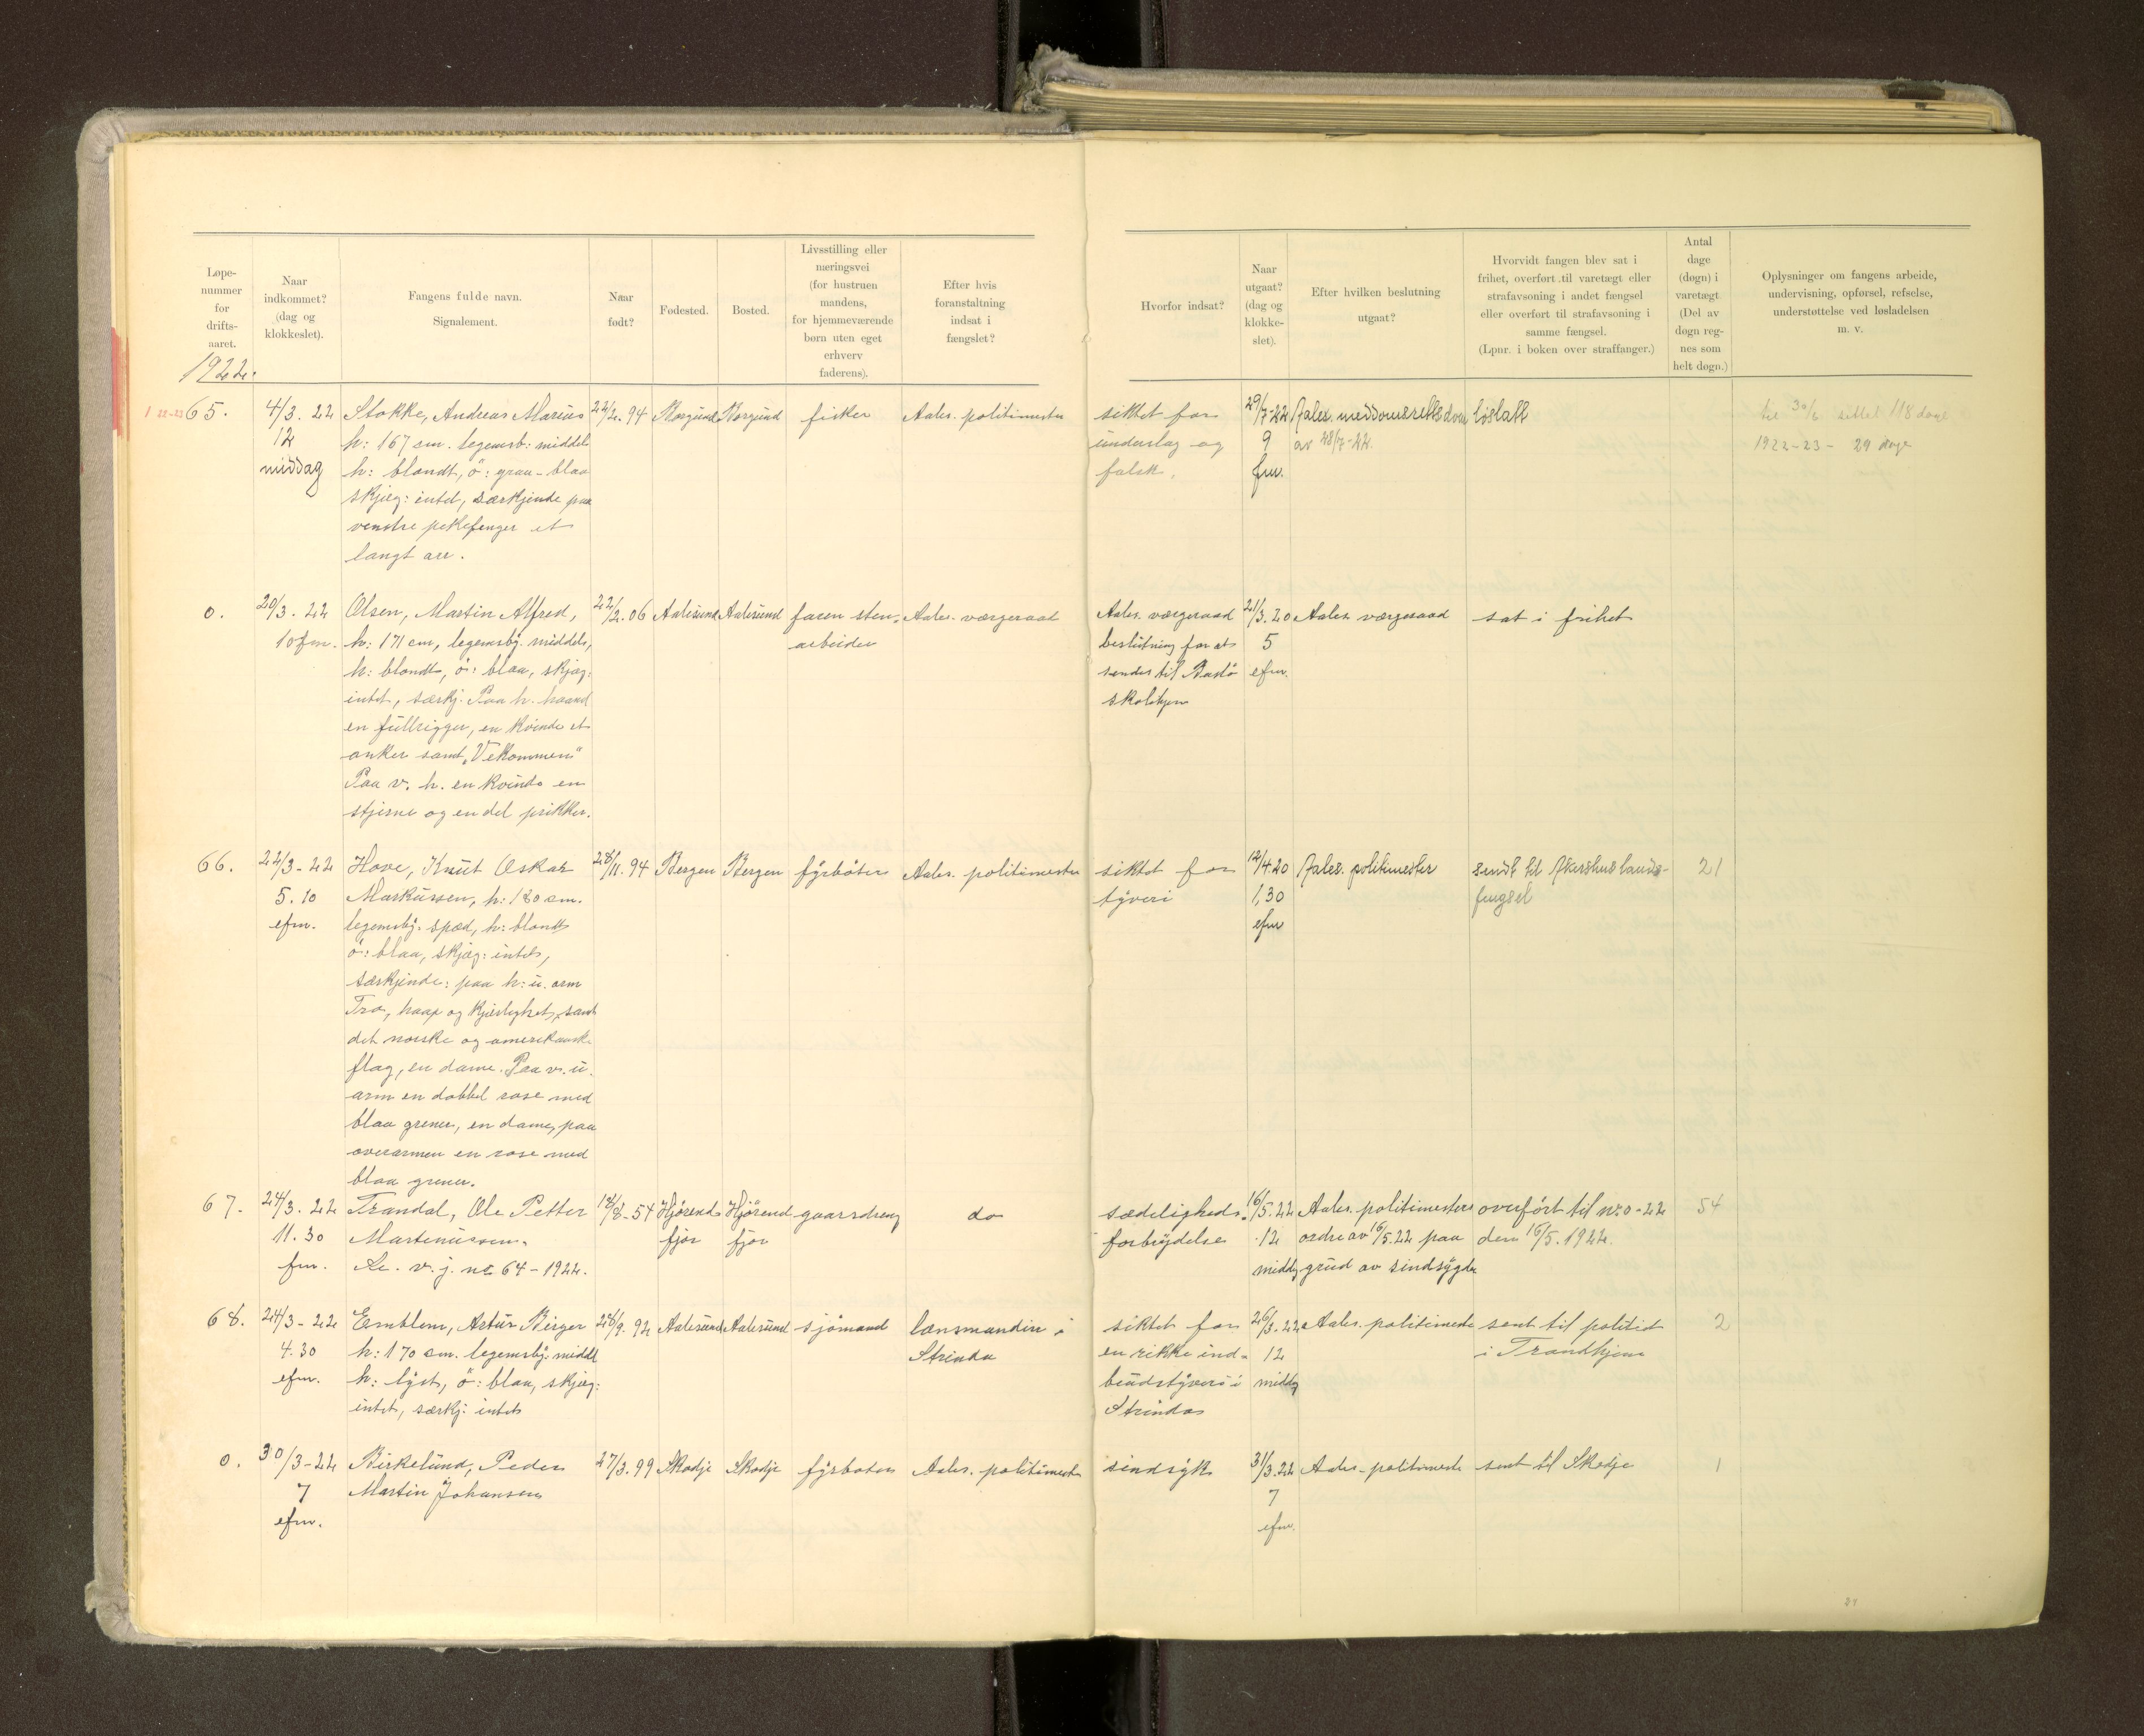 Løpe-
nummer
for
drifts-
aaret.
Naar
indkommet?
(dag og
klokkeslet).
Fangens fulde navn.
Signalement.
Naar
født?
Fødested.
Bosted.
Livsstilling eller
næringsvei
(for hustruen
mandens,
for hjemmeværende
børn uten eget
erhverv
faderens).
Efter hvis
foranstaltning
indsat i
fængslet?
Hvorfor indsat?
Naar
utgaat?
(dag og
klokke-
slet).
Efter hvilken beslutning
utgaat?
Hvorvidt fangen blev sat i
frihet, overført til varetægt eller
strafavsoning i andet fængsel
eller overført til strafavsoning i
samme fængsel.
(Lpnr. i boken over straffanger.)
Antal
dage
(døgn) i
varetægt
(Del av
døgn reg-
nes som
helt døgn.)
Oplysninger om fangens arbeide,
undervisning, opførsel, refselse,
understøttelse ved løsladelsen
m. v.
1922.
65.
4/3. 22
12
middag
Stokke, Andreas Marius
h: 167 cm. legemsb: middel
h: blandt, ö: graa-blaa
skjeg: intet, særkjende paa
venstre pekefinger et
langt arr.
22/2. 94
Borgund
Borgund
fisker
Aales. politimester
siktet for
underslag og
falsk.
29/7-22
9
fm.
Aales. meddomsrettsdom
av 28/7-22.
løslatt
til 30/6 sittet 118 dage
1922-23 - 29 dage
0.
20/3. 22
10 fm.
Olsen, Martin Alfred,
h: 171 cm, legemsbÿ. middels,
h: blondt, ö: blaa, skjæg:
intet, særkj: Paa h. haand
en fullrigger, en kvinde et
anker samt „Vekommen"
Paa v. h. en kvinde en
stjerne og en del prikker.
22/2. 06
Aalesund
Aalesund
faren sten,
arbeider
Aales. værgeraad
Aales. værgeraad
beslutning for at
sendes til Bastö
skolehjem
21/3. 20
5
efm.
Aales. værgeraad
sat i frihet
66.
22/3-22
5.10
efm.
Hove, Knut Oskar
Markussen, h: 180 cm.
legemsbÿ: spæd, h: blondt
ö: blaa, skjæg: intet,
særkjende: paa h: u. arm
Tro, haap og kjærlighet, samt
det norske og amerikanske
flag, en dame. Paa v. u.
arm en dobbel rose med
blaa grener, en dame, paa
overarmen en rose med
blaa grener.
28/11. 94
Bergen
Bergen
fÿrböter
Aales. politimester
siktet for
tÿveri
12/4.20
1,30
efm
Aales. politimester
sendt til Akershus lands-
fengsel
21
67.
24/3. 22
11.30
fm.
Trandal, Ole Petter
Martinussen.
Se. v. j. nr 64-1922.
18/8-54
Hjörend
fjor
Hjörend
fjor
gaarsdreng
do
sædeligheds.
forbrÿdelse
16/5.22
12
middg
Aales. politimesters
ordre av 16/5.22 paa
grund av sindsÿgda
overfört til nr. 0-22
dem 16/5. 1922.
54
68.
24/3-22
4.30
efm.
Emblem, Artur Birger
h: 170 cm. legemsbÿ: middel
h: lÿst, ö: blaa, skjæg:
intet, særkj: intet
28/9. 92
Aalesund
Aalesund
sjömand
lænsmandin i
Strinda
siktet for
en rikke ind-
brudstÿveri i
Strinda
26/3. 22
12
middg
Aales. politimester
sent til politiet
i Trondhjem
2
0.
30/3-22
7
efm.
Birkelund, Peder
Martin Johansen
27/3. 99
Skodje
Skodje
fÿrboter
Aales. politimester
sindsÿk
31/3.22
7
efm.
Aales. politimester
sent til Skodje
1